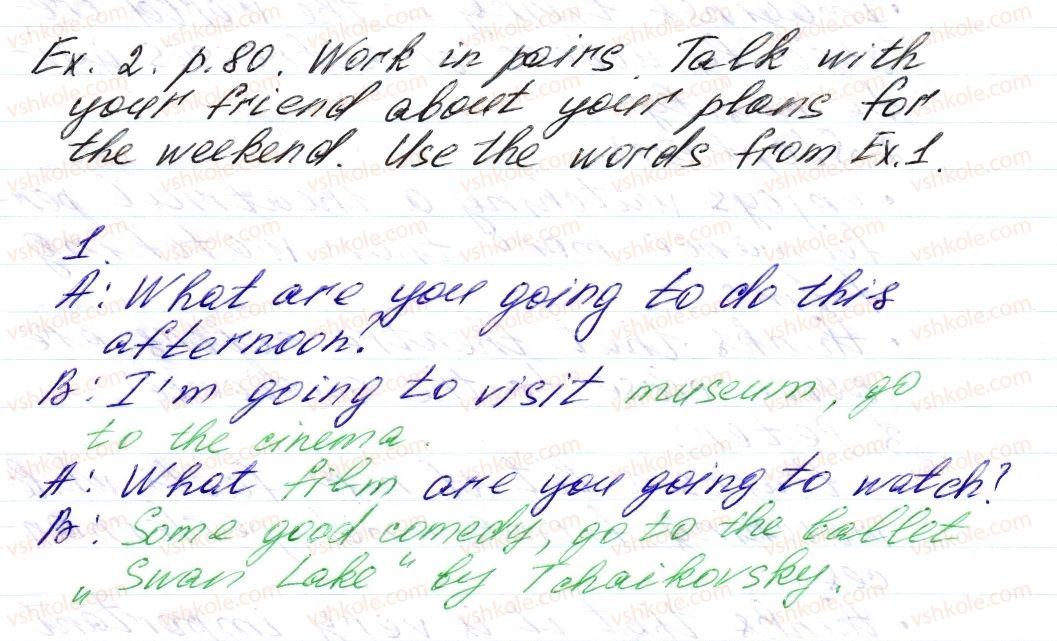 Ex. 2. p.80. Work in pairs. Talk with
your friend about your plans for
the weekend. Use the words from Ex.1.
1.
A: What are you going to do this
afternoon?
B: I'm going to visit museum, go
to the cinema.
A: What film are you going to watch?
B: Some good comedy, go to the ballet
„Swan Lake" by Tchaikovsky.